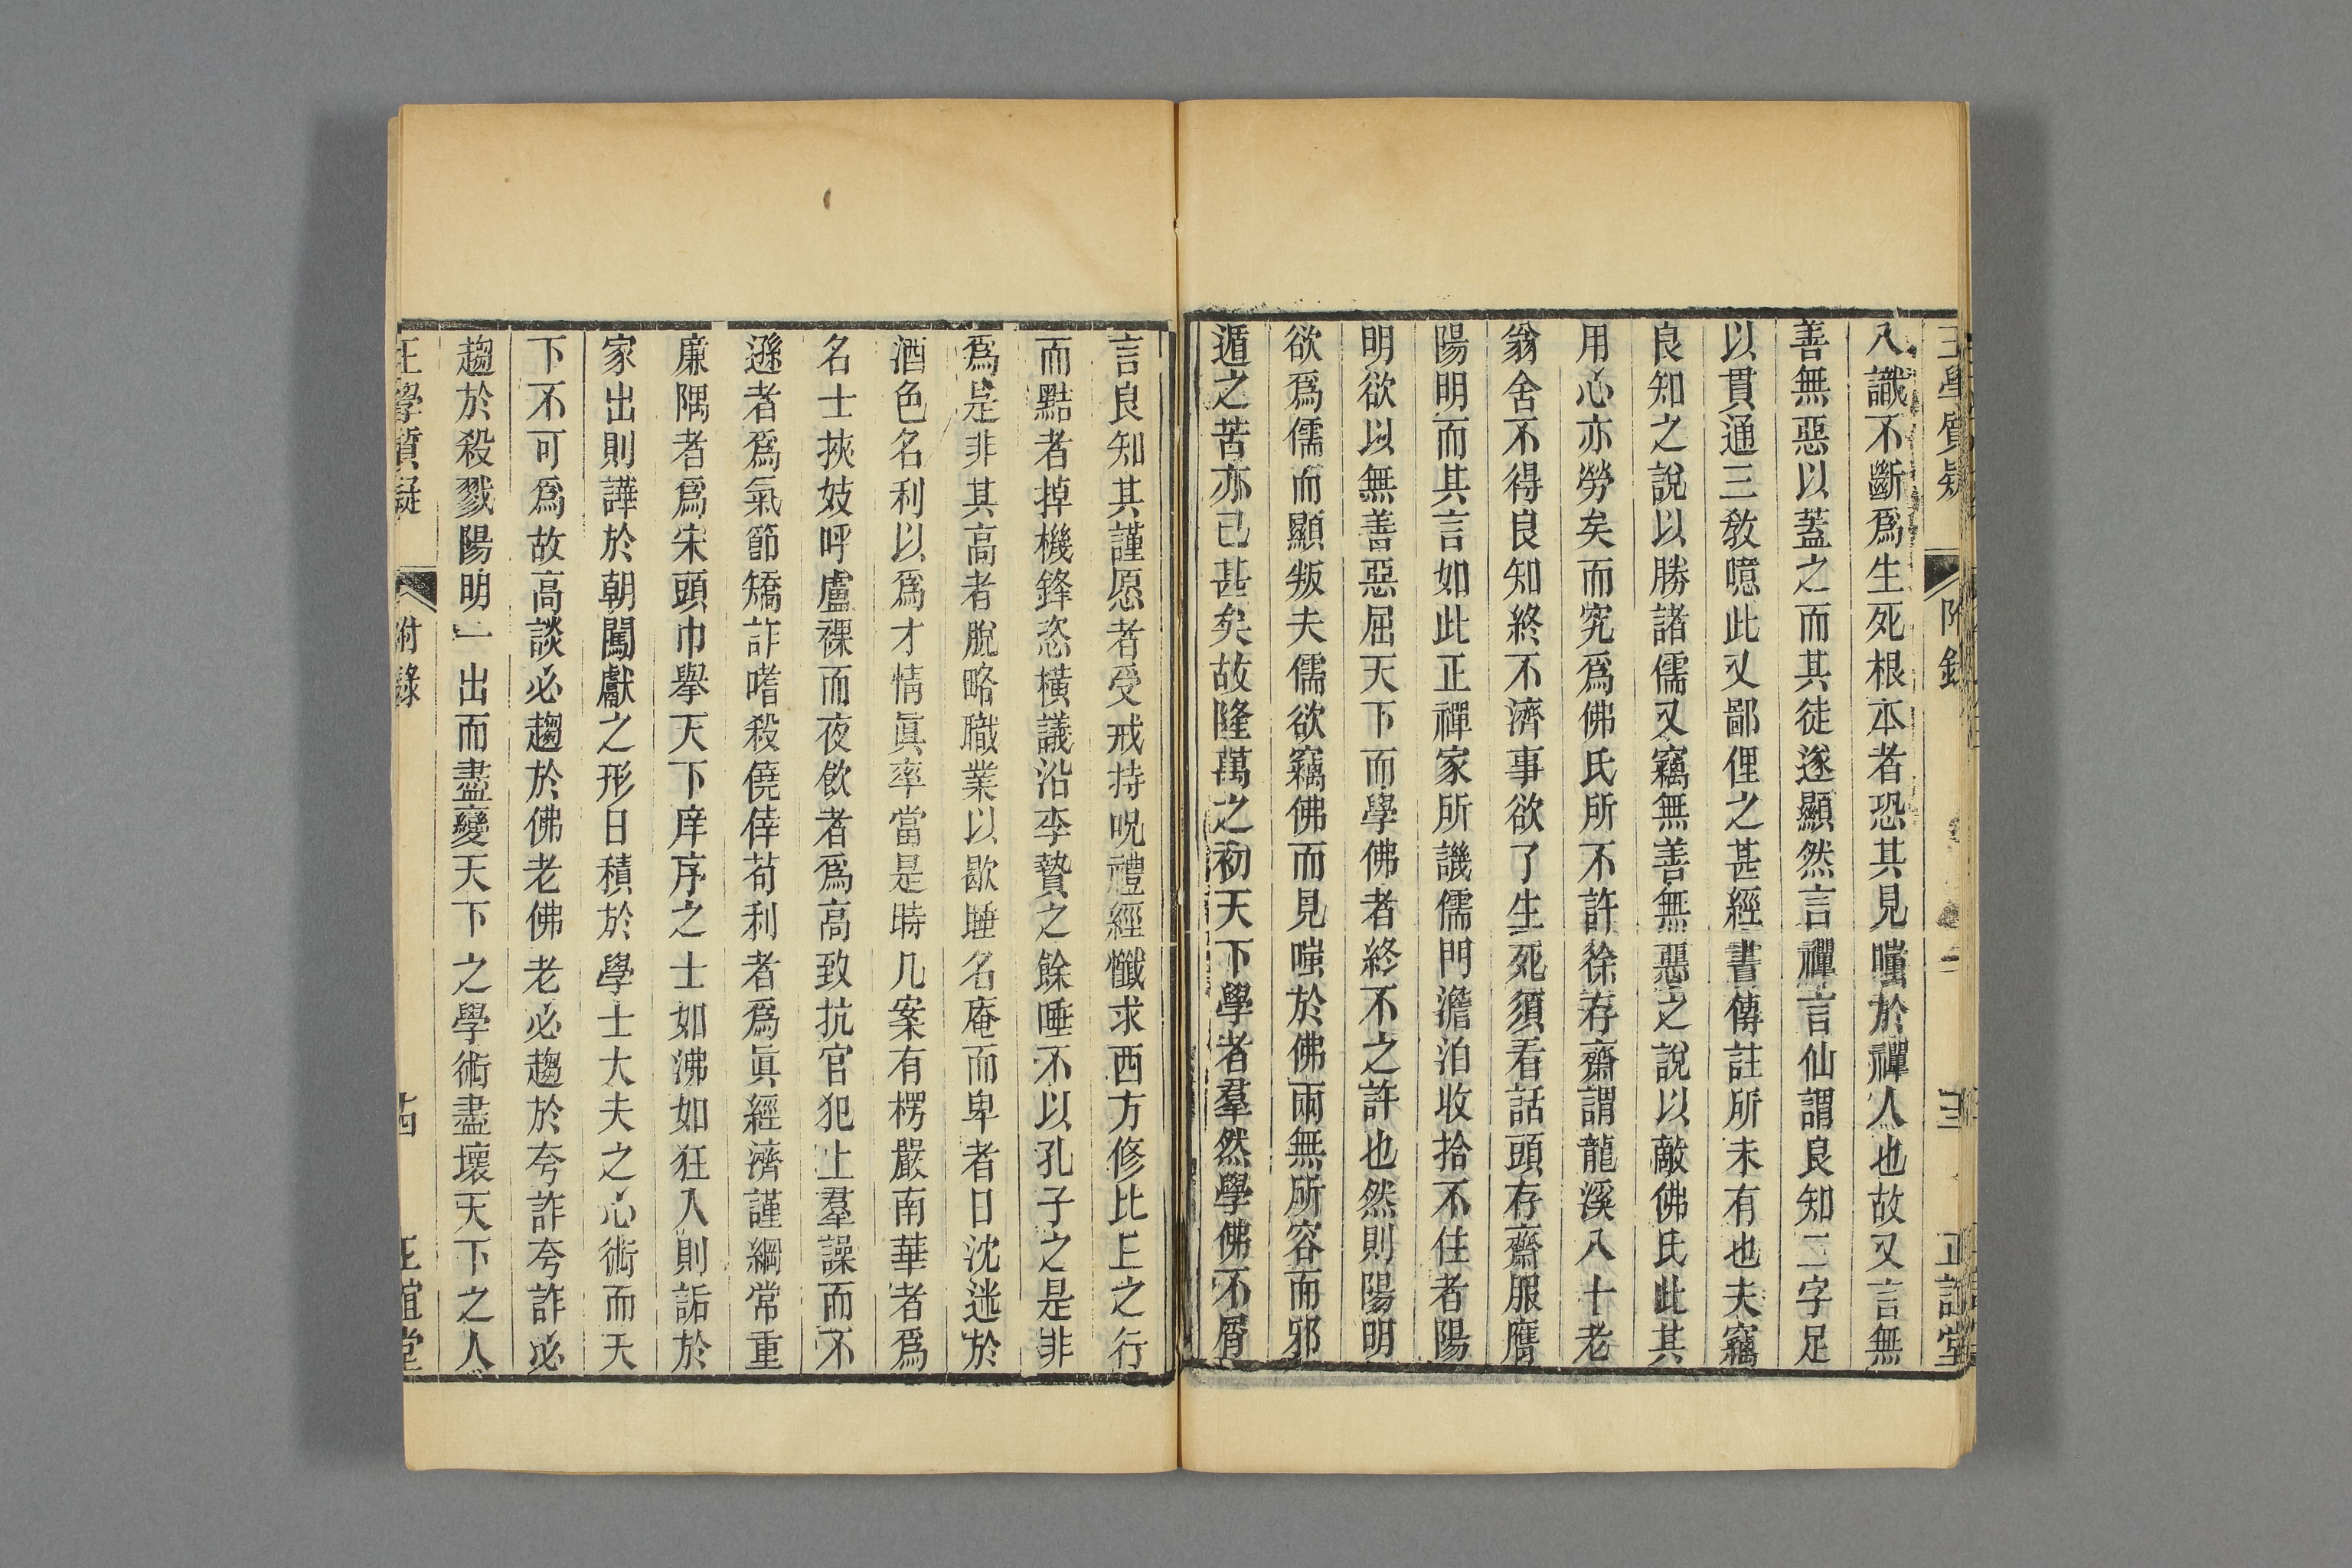 王學質疑 附錄 三 正誼堂
八識不斷爲生死根本者恐其見嗤於禪人也故又言無
善無惡以蓋之而其徒遂顯然言禪言仙謂良知二字足
以貫通三敎噫此又鄙俚之甚經書傳註所未有也夫竊
良知之說以勝諸儒又竊無善無惡之說以敵佛氏此其
用心亦勞矣而究爲佛氏所不許徐存齋謂龍溪八十老
翁舍不得良知終不濟事欲了生死須看話頭存齋服膺
陽明而其言如此正禪家所譏儒門澹泊收拾不住者陽
明欲以無善惡屈天下而學佛者終不之許也然則陽明
欲爲儒而顯叛夫儒欲竊佛而見嗤於佛兩無所容而邪
遁之苦亦已甚矣故隆萬之初天下學者羣然學佛不屑
言良知其謹愿者受戒持呪禮經懺求西方修比丘之行
而黠者掉機鋒恣橫議沿李贄之餘唾不以孔子之是非
爲是非其高者脫略職業以歇睡名庵而卑者日沈迷於
酒色名利以爲才情眞率當是時几案有楞嚴南華者爲
名士挾妓呼盧裸而夜飲者爲高致抗官犯上羣譟而不
遜者爲氣節矯詐嗜殺僥倖苟利者爲眞經濟謹綱常重
廉隅者爲宋頭巾舉天下庠序之士如沸如狂入則詬於
家出則譁於朝闖獻之形日積於學士大夫之心術而天
下不可爲故高談必趨於佛老佛老必趨於夸詐夸詐必
趨於殺戮陽明一出而盡變天下之學術盡壞天下之人
王學質疑 附錄 茜 正誼堂